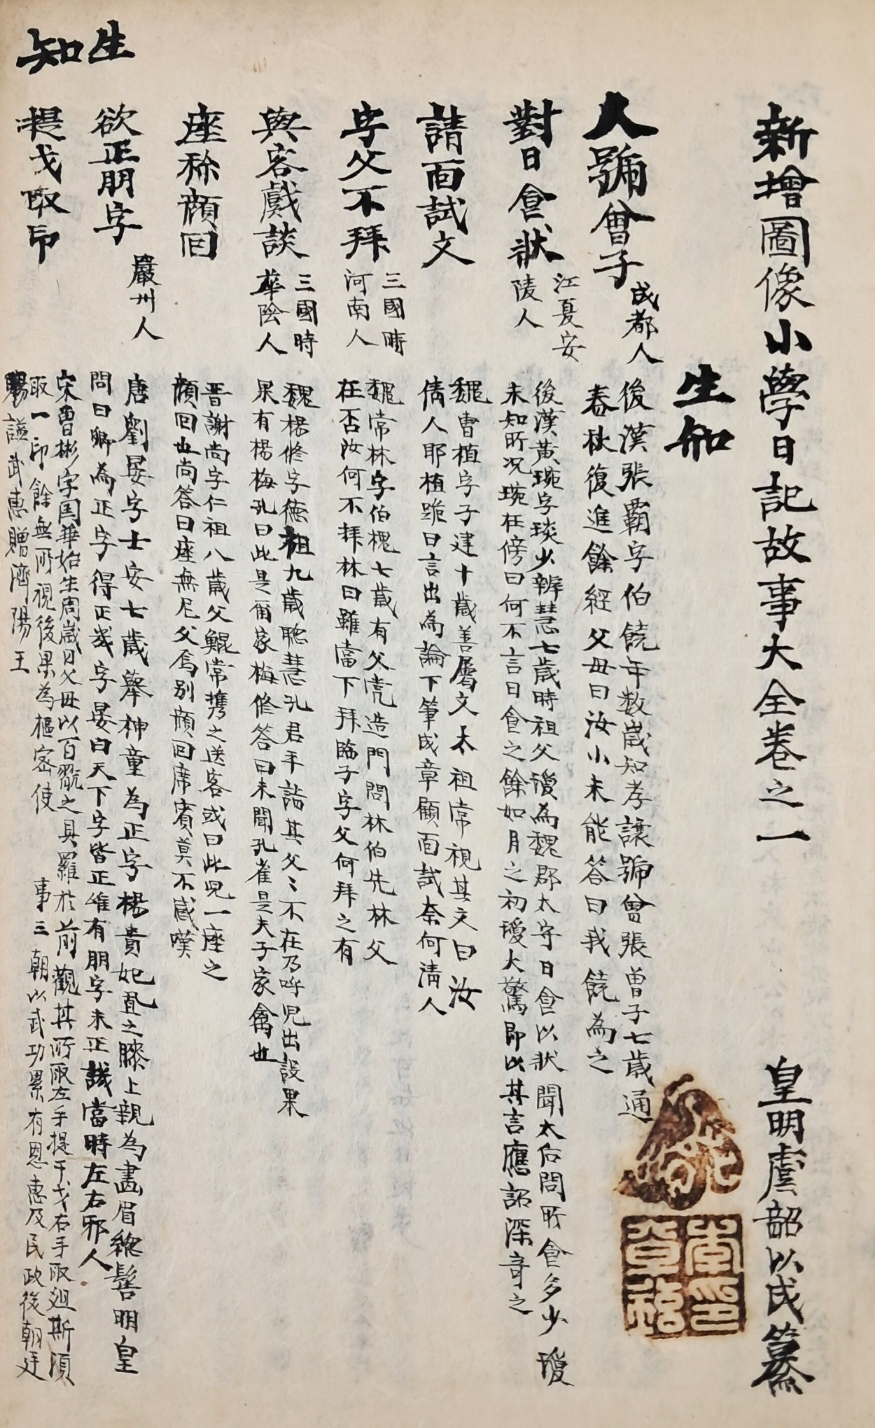 新增圖像小學日記故事大全卷之一
皇明虞韶以成纂
生知
人號曾子
成都人
後漢張霸字伯饒年数歲知孝讓號曾張曽子七歲通
春秋復進餘經父母曰汝小未能答曰我饒為之
對日食狀
江夏安
陵人
後漢黃琬字琰少辨慧七歲時祖父瓊為魏郡太守日食以狀聞太后問所食多少瓊
未知所况琬在傍曰何不言日食之餘如月之初瓊大驚即以其言應詔深竒之
請面試文
魏曹植字子建十歲善属文太祖常視其文曰汝
倩人耶植跪曰言出為論下筆成章顧面試奈何淸人
字父不拜
三國時
河南人
魏常林字伯槐七歲有父党造門問林伯先林父
在否汝何不拜林曰雖當下拜臨子字父何拜之有
與客戲談
三國時
華陰人
魏楊修字德祖九歲聡慧孔君平詣其父〻不在乃呼児出設果
果有楊梅孔曰此是爾家梅修答曰未聞孔雀是夫子家禽也
座称顔回
晋謝尚字仁祖八歲父鯤常携之送客或曰此児一座之
顔回也尚答曰座無尼父焉别顔回席賓莫不咸嘆
欲正朋字
嚴州人
唐劉晏字士安七歲舉神童為正字楊貴妃置之膝上親為畵眉総髻明皇
問曰卿為正字得正幾字晏曰天下字皆正惟有朋字未正譏當時左右邪人
提戈取印
宋曹彬字国華始生周歲日父母以百翫之具羅於前觀其所取左手提干戈右手取俎斯湏
取一印餘無所視後果為樞密使
事三朝以武功累有恩惠及民政後朝廷
賜謚武惠贈濟陽王
生知